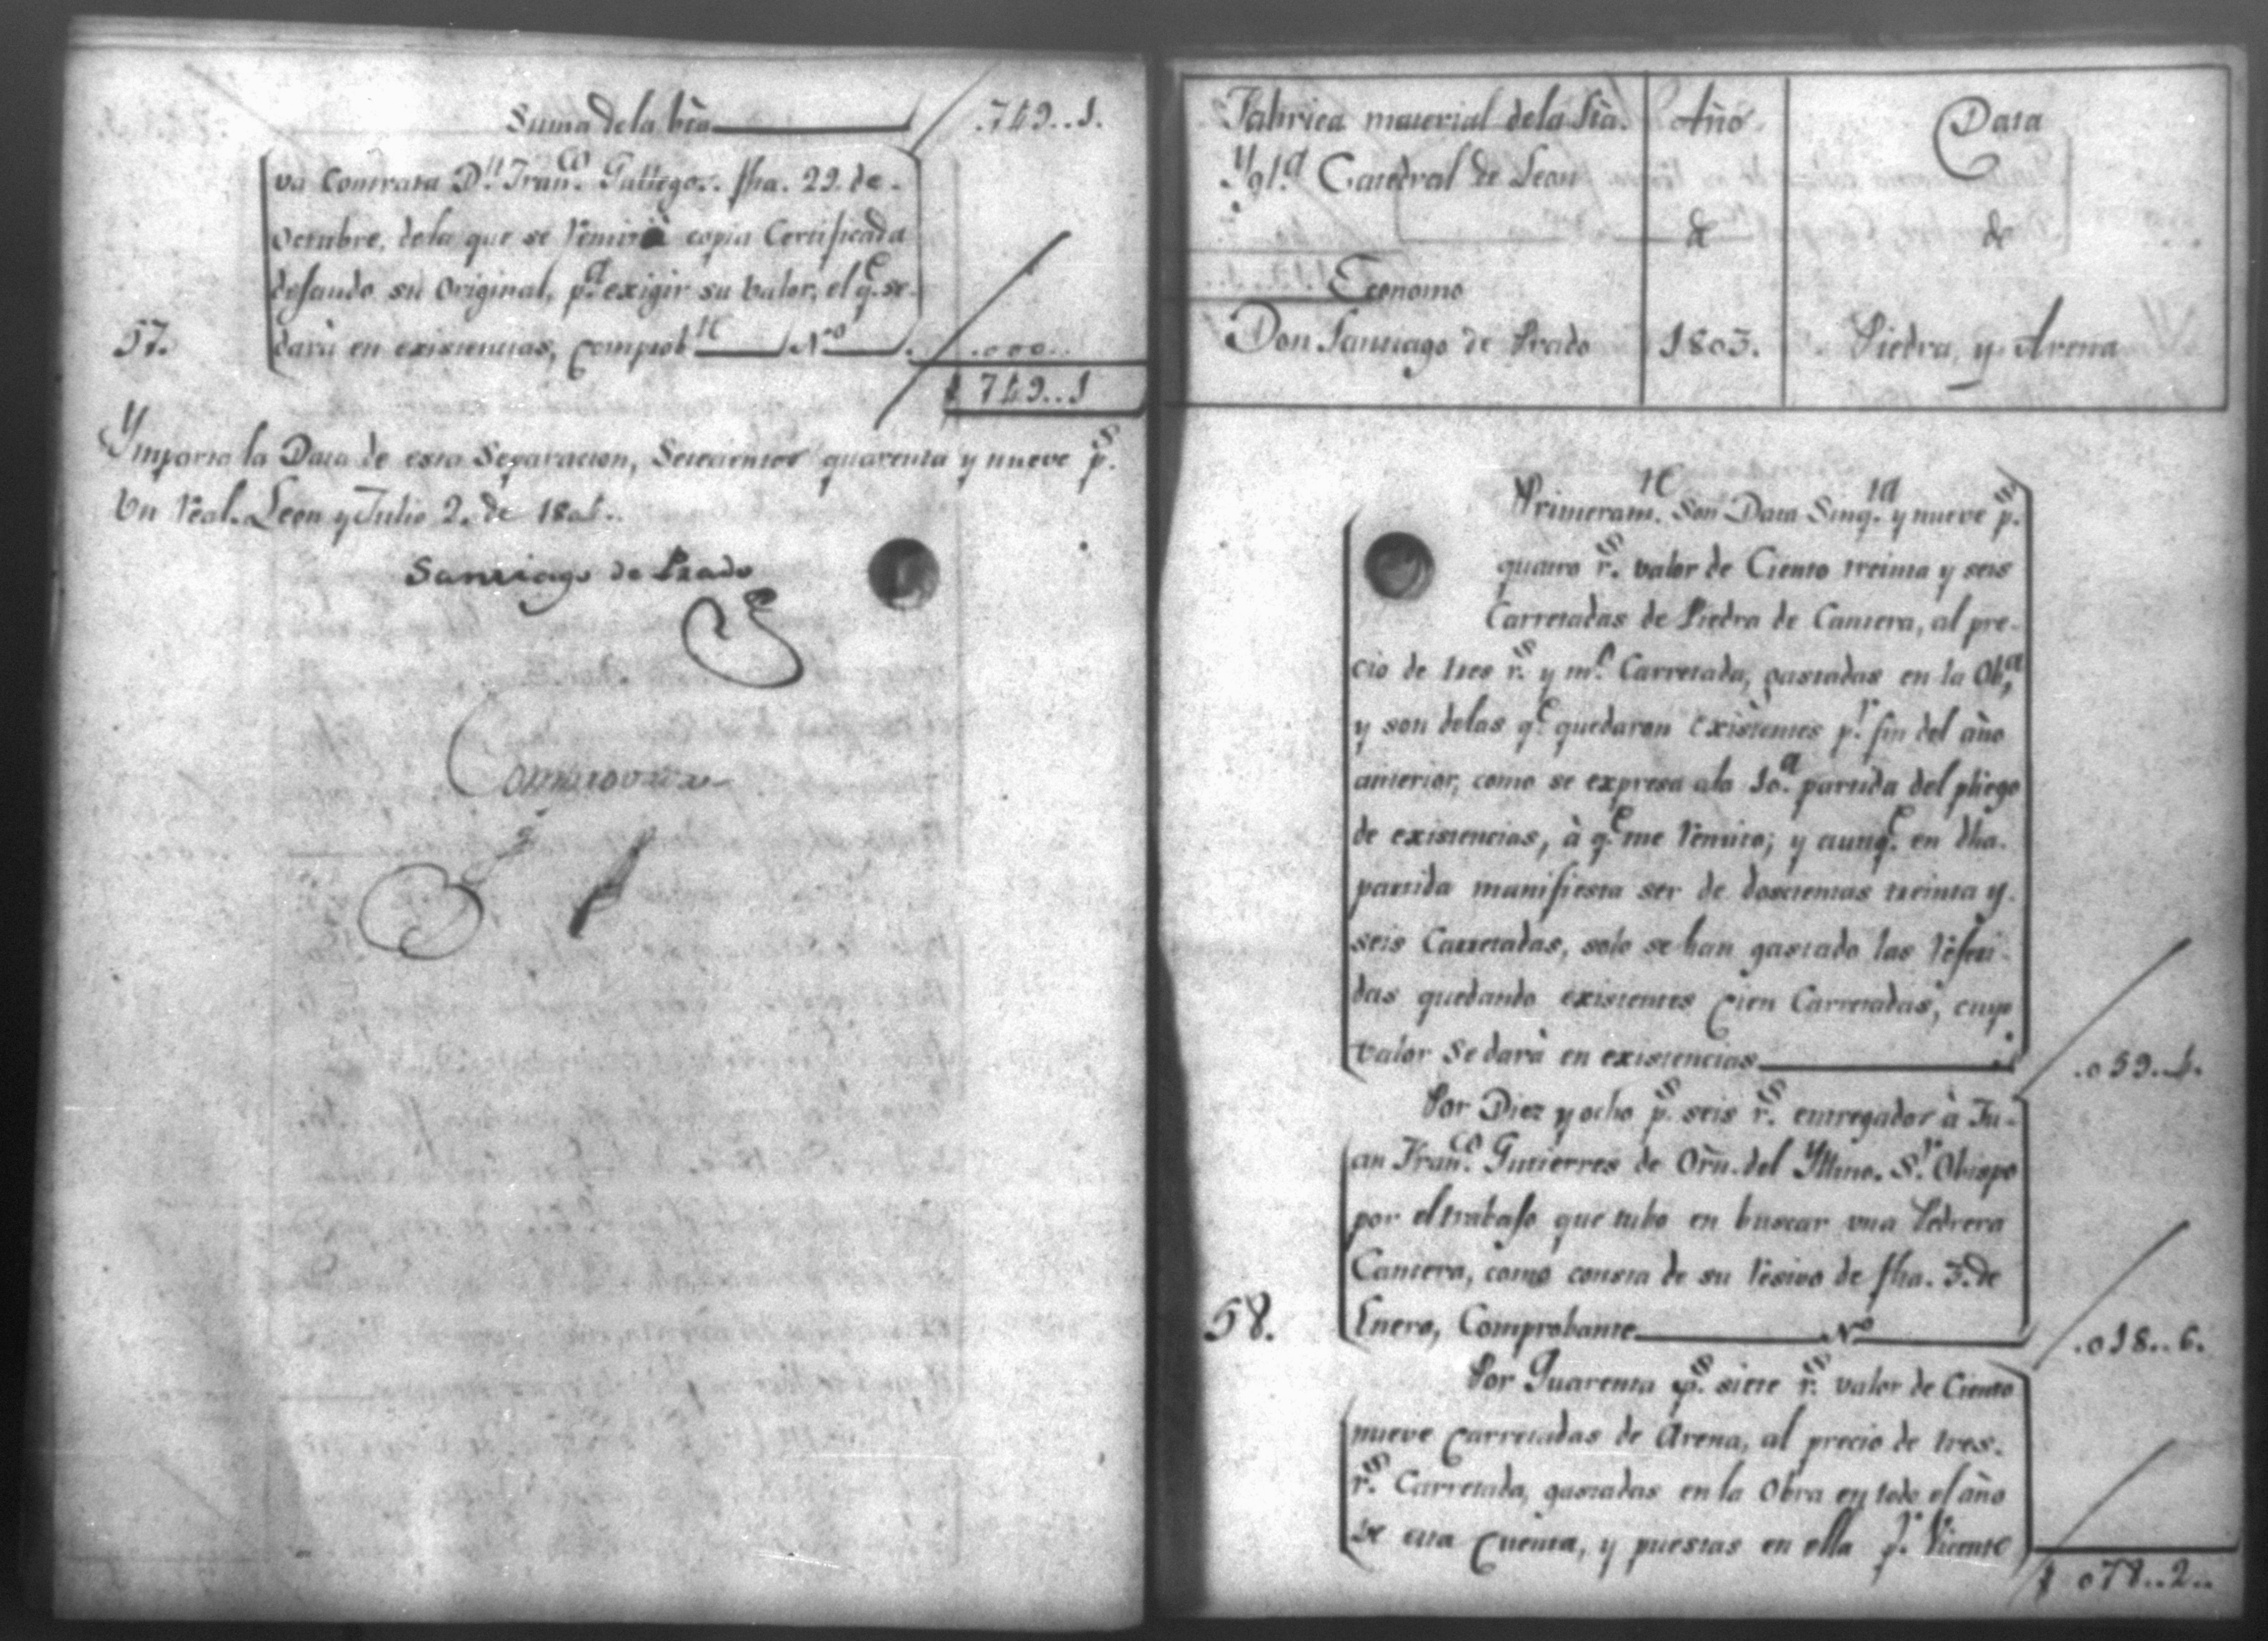 Suma de la bta .749..1.
va Contrata Dn. Franco. Gallegos. fha. 22. de
Octubre, dela que se remitirà copia Certificada
dejando su Original, pa. exigir su valor, el qe. se
57. darà en existencias, Comprobte No. .000..
$ 749..1
Ymporta la Data de esta Separacion, Setecientos quarenta y nueve ps.
Vn real. Leon y Julio 2. de 1804.
Santiago de Prado
Fabrica material dela Sta.
Ygla. Catedral de Leon
Economo
Don Santiago de Prado
Año
de
1803.
Data
de
Piedra, y Arena
Primeramte. son Data Sinqta. y nueve ps.
quatro rs. valor de Ciento treinta y seis
Carretadas de Piedra de Cantera, al pre-
cio de tres rs. y mo. Carretada, gastadas en la Oba,
y son delas qe. quedaron existentes pr. fin del año
anterior, como se expresa ala 10a. partida del pliego
de existencias, à qe. me remito; y aunqe. en dha.
partida manifiesta ser de doscientas treinta y
seis Carretadas, solo se han gastado las referi-
das quedando existentes Cien Carretadas, cuyo
valor se darà en existencias .059..4.
Por Diez y ocho ps. seis rs. entregados à Ju-
an Franco. Gutierres de Orñ. del Yllmo. Sr. Obispo
por el trabajo que tubo en buscar una Pedrera
Cantera, como consta de su resivo de fha. 3. de
58. Enero, Comprobante No .018..6.
Por Quarenta ps. siete rs. valor de Ciento
nueve Carretadas de Arena, al precio de tres.
rs. Carretada, gastadas en la Obra en todo el año
de esta Cuenta, y puestas en ella pr. Vicente
$ 078..2..